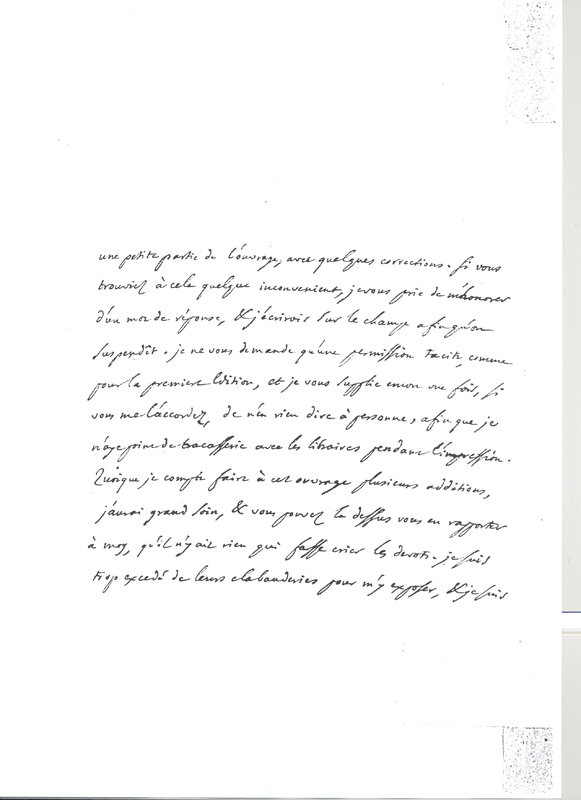 une petite partie de l'ouvrage, avec quelques corrections. Si vous
trouviez à cela quelque inconvenient, je vous prie de m'honorer
d'un mot de réponse, & j'écrirois sur le champ afin qu'on
suspendît. je ne vous demande qu'une permission tacite, comme
pour la premiere Edition, et je vous supplie encor une fois, si
vous me l'accordez, de n'en rien dire à personne, afin que je
n'aye point de tracasserie avec les libraires pendant l'impression.
Quoique je compte faire à cet ouvrage plusieurs additions,
j'aurai grand soin, & vous pouvez la dessus vous en rapporter
à moy, qu'il n'y ait rien qui fasse crier les devots. je suis
trop excedé de leurs clabauderies pour m'y exposer, & je suis